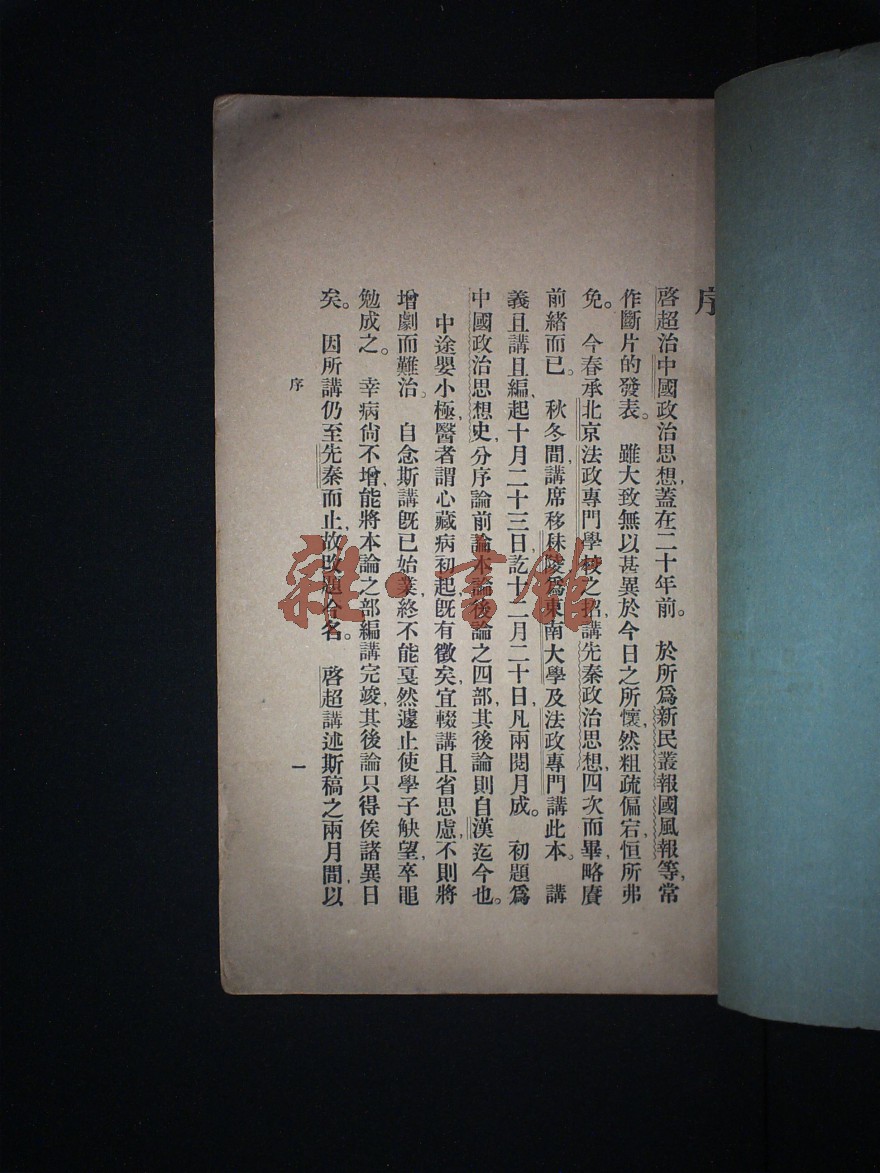 序
啓超治中國政治思想,蓋在二十年前。 於所爲新民叢報國風報等,常
作斷片的發表。 雖大致無以甚異於今日之所懷,然粗疏偏宕,恒所弗
免。 今春承北京法政專門學校之招,講先秦政治思想,四次而畢,略賡
前緒而已。 秋冬間,講席移秣陵,爲東南大學及法政專門講此本。 講
義且講且編,起十月二十三日,訖十二月二十日,凡兩閱月成。 初題爲
中國政治思想史,分序論前論本論後論之四部,其後論則自漢迄今也。
中途嬰小極,醫者謂心藏病初起,既有徵矣,宜輟講且省思慮,不則將
增劇而難治。 自念斯講既已始業,終不能戞然遽止,使學子觖望,卒黽
勉成之。 幸病尙不增,能將本論之部編講完竣,其後論只得俟諸異日
矣。 因所講仍至先秦而止,故改題今名。 啓超講述斯稿之兩月間,以
序
一
雜·書館